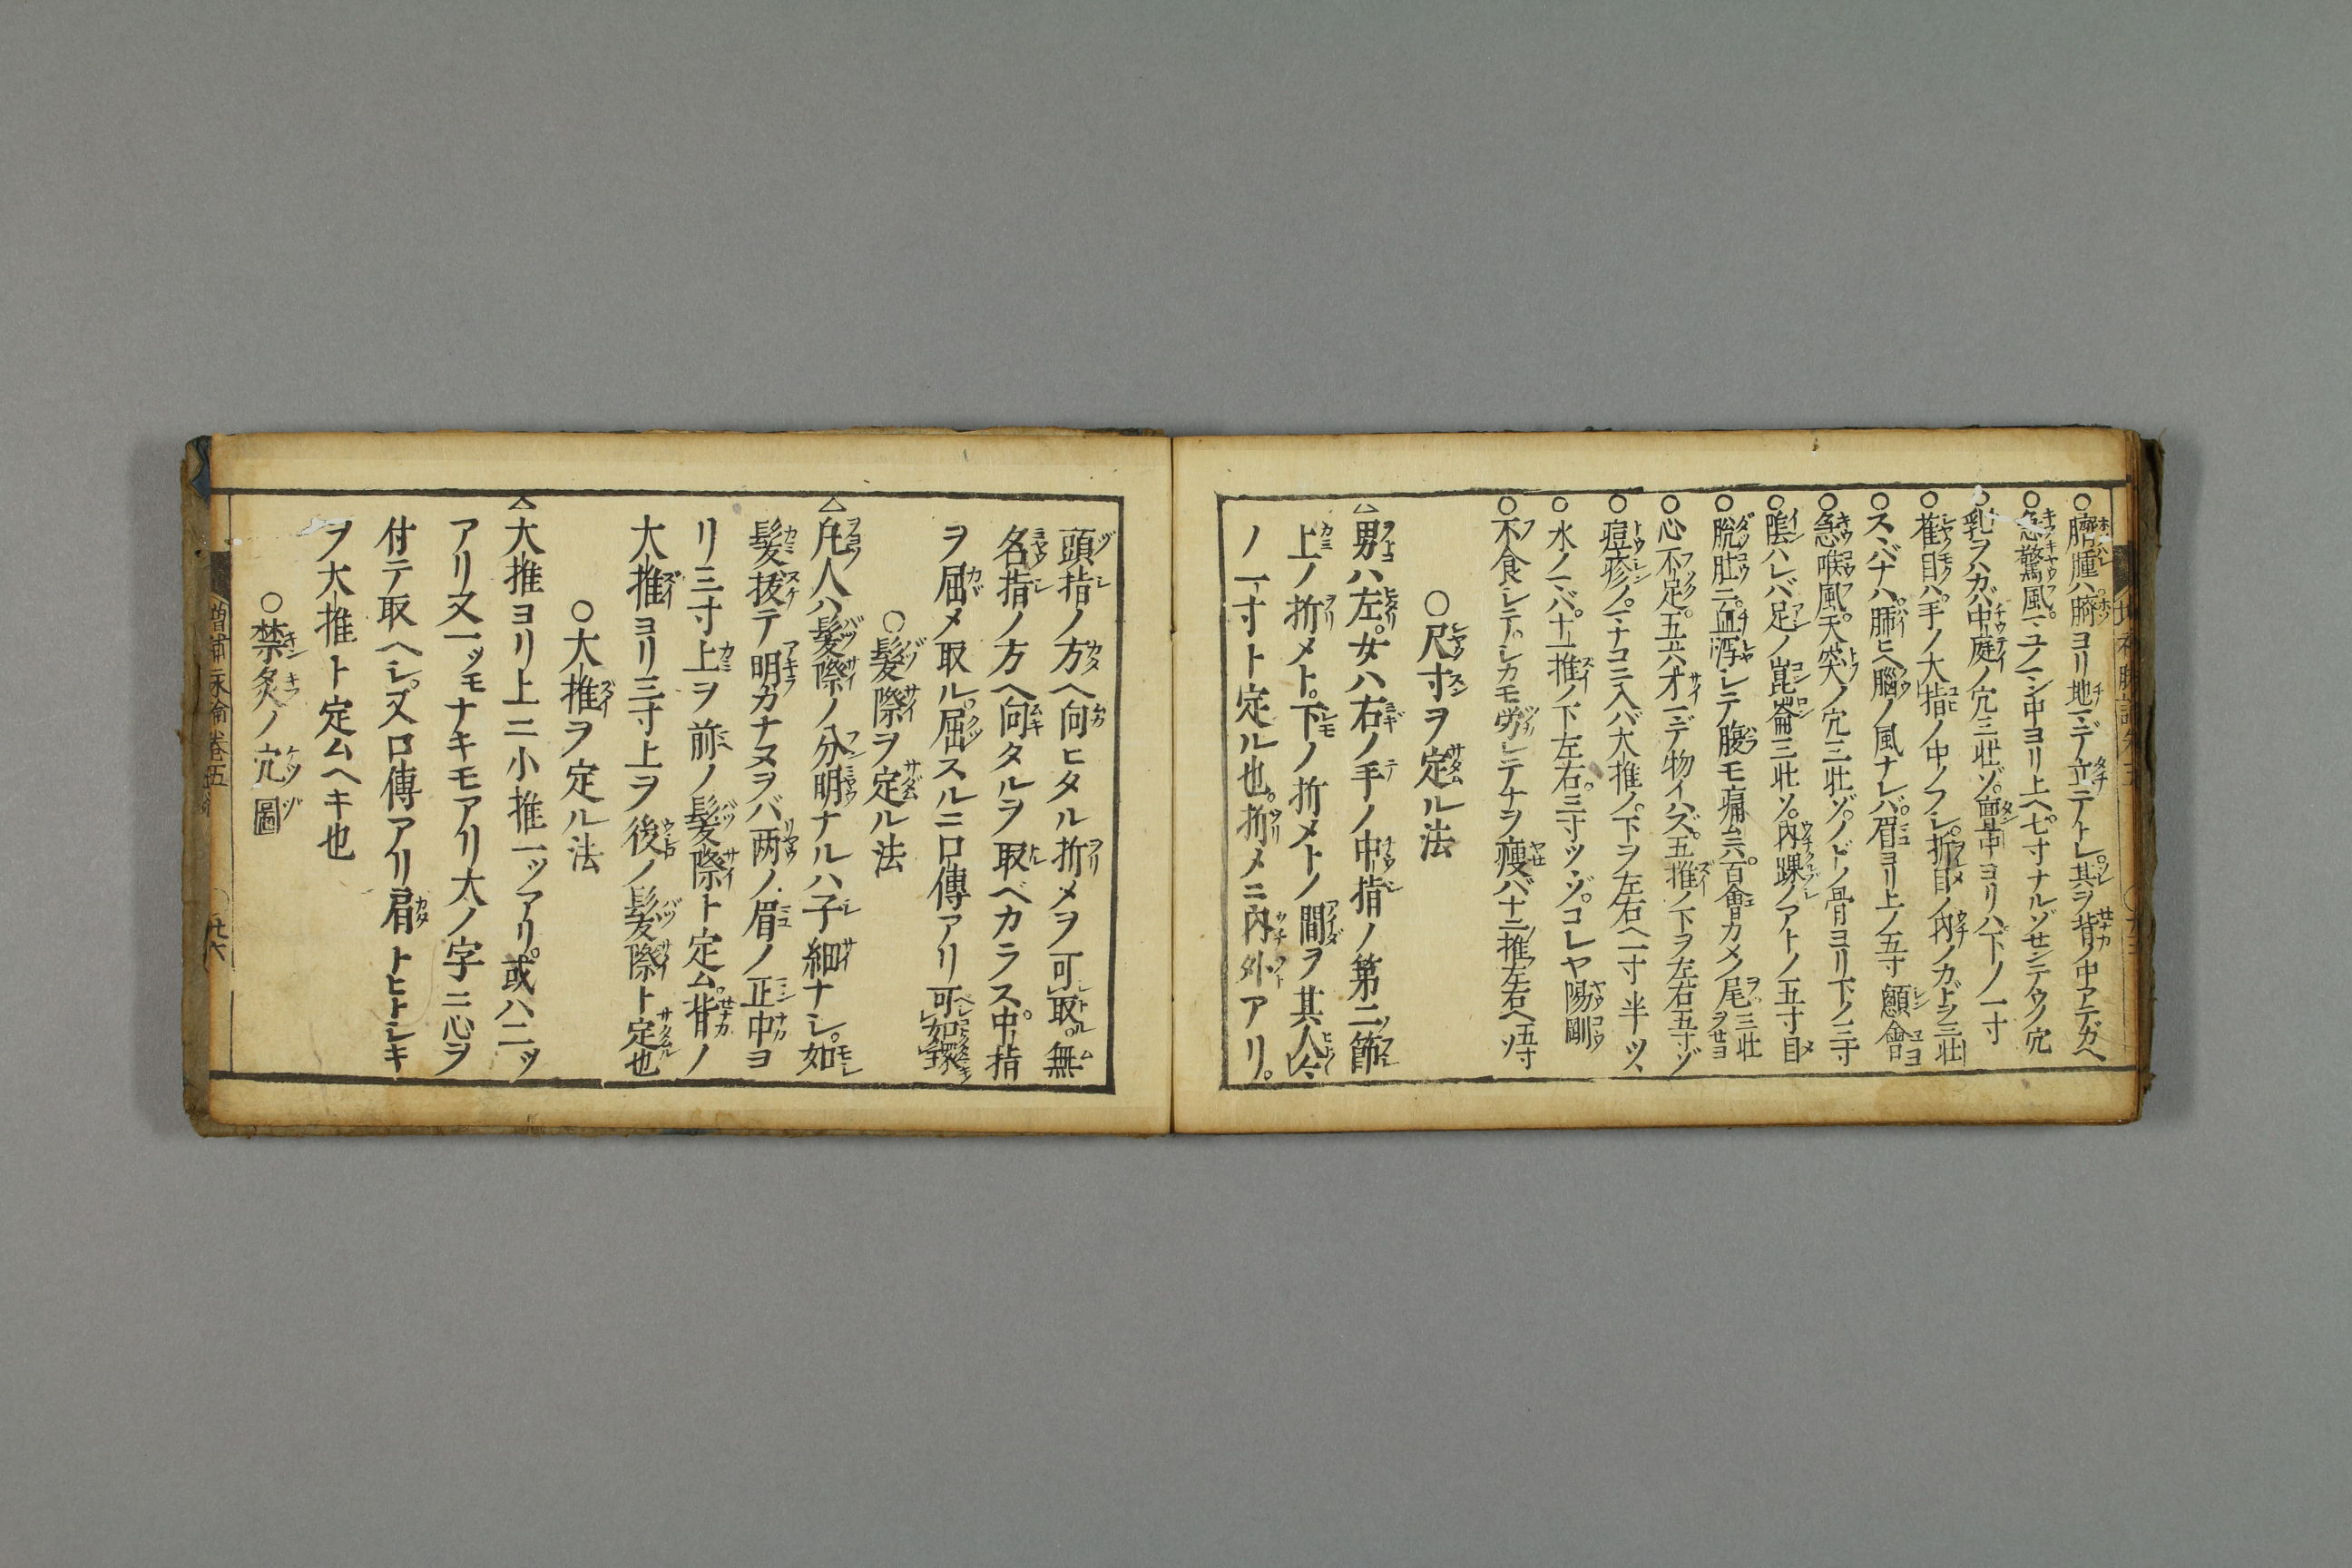 ○臍腫ハ臍ヨリ地マデ立テトレ其ヲ背ノ中アテガヘ
○急驚風マユノシン中ヨリ上ヘ七寸ナルゾセンテウノ穴
○乳ヲハカバ中庭ノ穴三壮ゾ膻中ヨリハ下ノ一寸
○雀目ハ手ノ大指ノ中ノフシ折目ノ内ノカドヲ三壮
○スバナハ肺ヒヘ腦ノ風ナレバ眉ヨリ上ノ五寸顖會ヨ
○急喉風天突ノ穴三壮ゾノドノ骨ヨリ下ノ三寸
○陰ハレバ足ノ崑崙三壮ソ内踝ノアトノ五寸目
○脱肛ニ血瀉シテ腹モ痛ムニ百會カメノ尾ヲ三壮セヨ
○心不足五六才マデ物イハズ五推ノ下ヲ左右五寸ゾ
○痘疹ノマナコニ入バ大推ノ下ヲ左右ヘ一寸半ツヽ
○水ノマバ十一推ノ下左右三寸ツヽゾコレヤ陽剛
○不食シテシカモ労シテナヲ痩バ十二推左右ヘ五寸ソ
○尺寸ヲ定ル法
△男ハ左女ハ右ノ手ノ中指ノ第二ノ節
上ノ折メト下ノ折メトノ間ヲ其人々
ノ一寸ト定ル也折メニ内外アリ
頭指ノ方ヘ向ヒタル折メヲ可取無
名指ノ方ヘ向タルヲ取ベカラス中指
ヲ屈メ取ル屈スルニ口傳アリ可如環
○髮際ヲ定ル法
△凡人ハ髮際ノ分明ナルハ子細ナシ如
髮抜テ明ガナヌヲバ两ノ眉ノ正中ヨ
リ三寸上ヲ前ノ髮際ト定ム背ノ
大推ヨリ三寸上ヲ後ノ髮際ト定也
○大推ヲ定ル法
△大推ヨリ上ニ小推一ツアリ或ハ二ツ
アリ又一ツモナキモアリ大ノ字ニ心ヲ
付テ取ヘシ又口傳アリ肩トヒトシキ
ヲ大推ト定ムヘキ也
○禁灸ノ穴圖
巻五
廿六